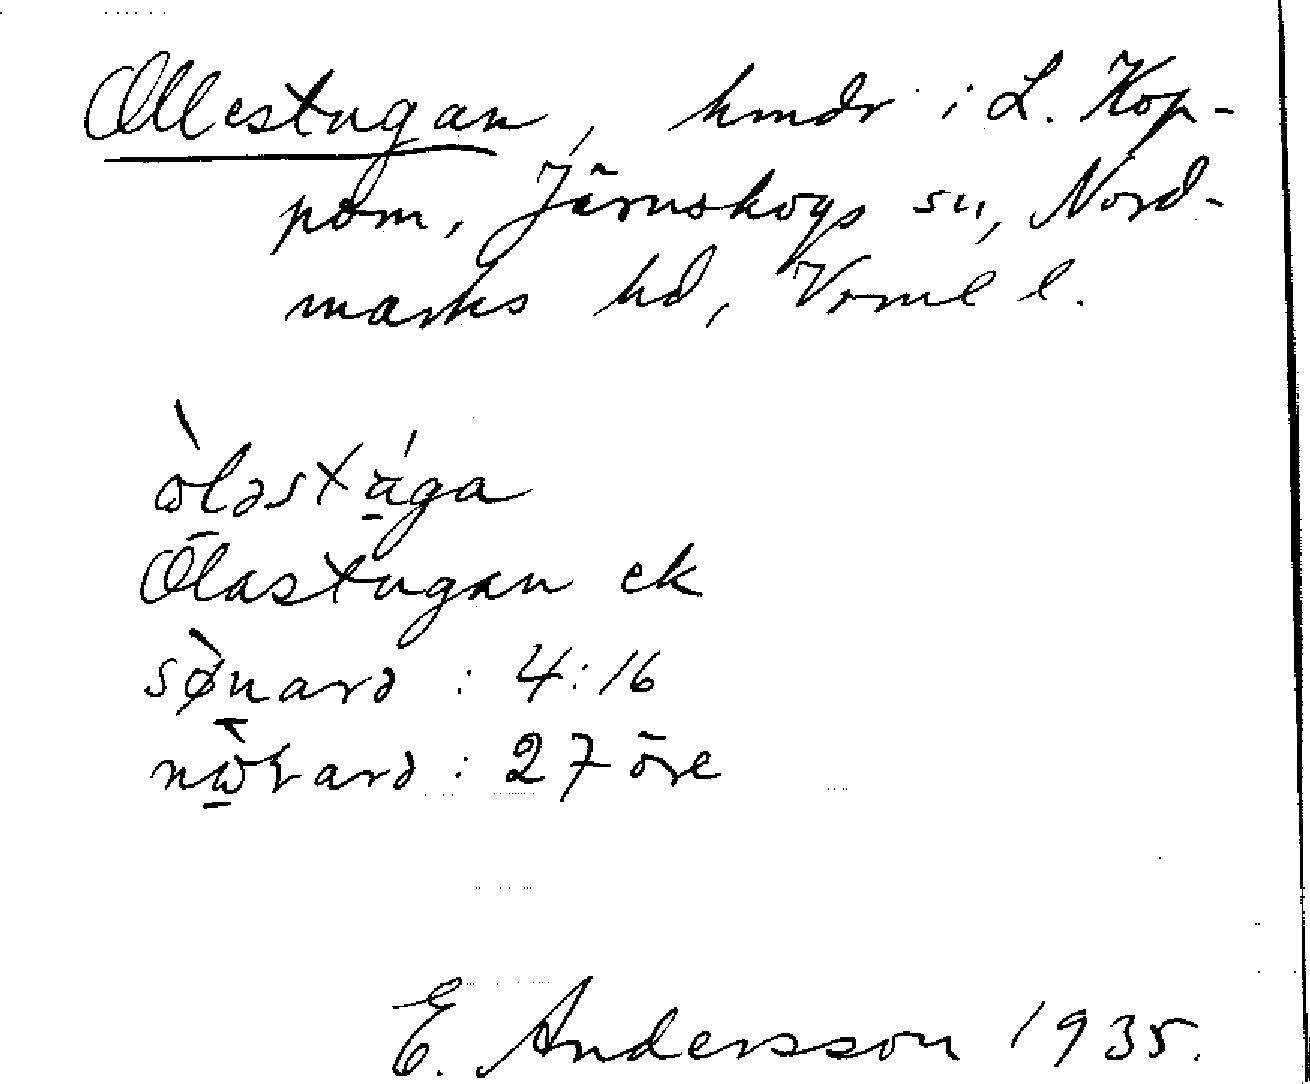 Ollestugan, hmdr i L. Kop-
pom, Järnskogs sn, Nord-
marks hd, Vrml l.
ɷ̀ləstǻga
Ōlastugan ek
sø̀narə : 4:16
nɷ̀ꞧarə : 27 öre
E. Andersson 1935.